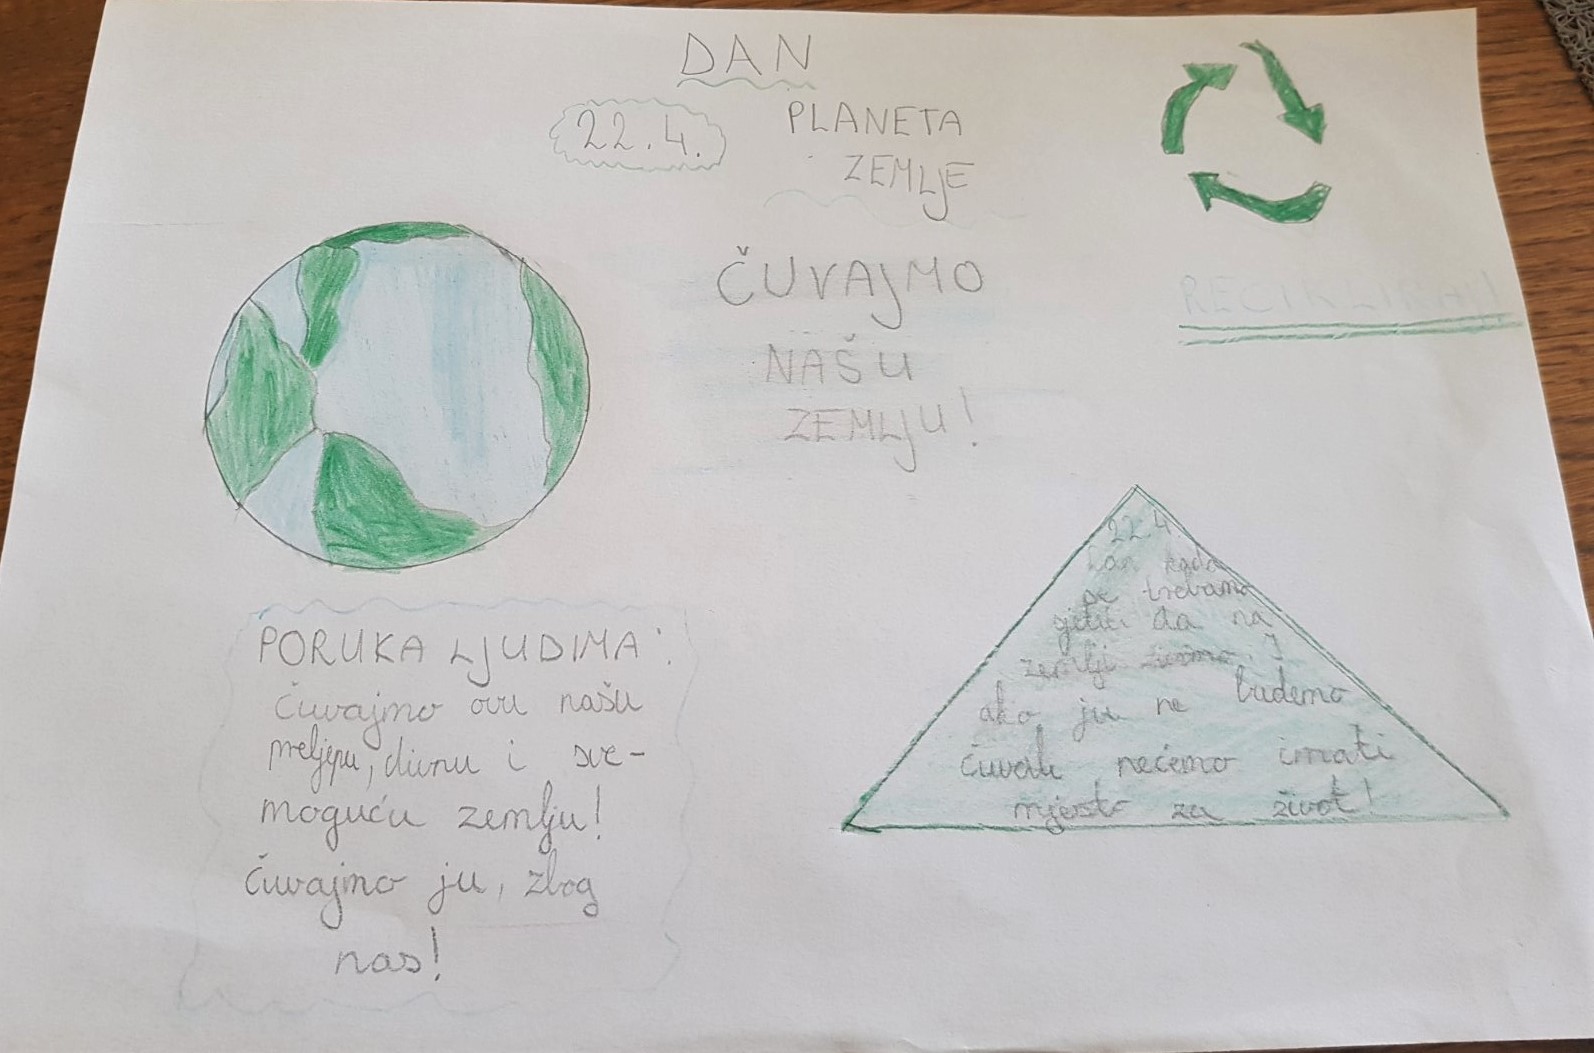 DAN
22.4. PLANETA
ZEMLJE
ČUVAJMO
NAŠU
ZEMLJU!
RECIKLIRAJ!
PORUKA LJUDIMA:
čuvajmo ovu našu
prelijepu, divnu i sve-
moguću zemlju!
čuvajmo ju, zbog
nas!
22.4.
Dan kada
se trebamo
da na
zemlji živimo. I
ako ju ne budemo
čuvali nećemo imati
mjesto za život!